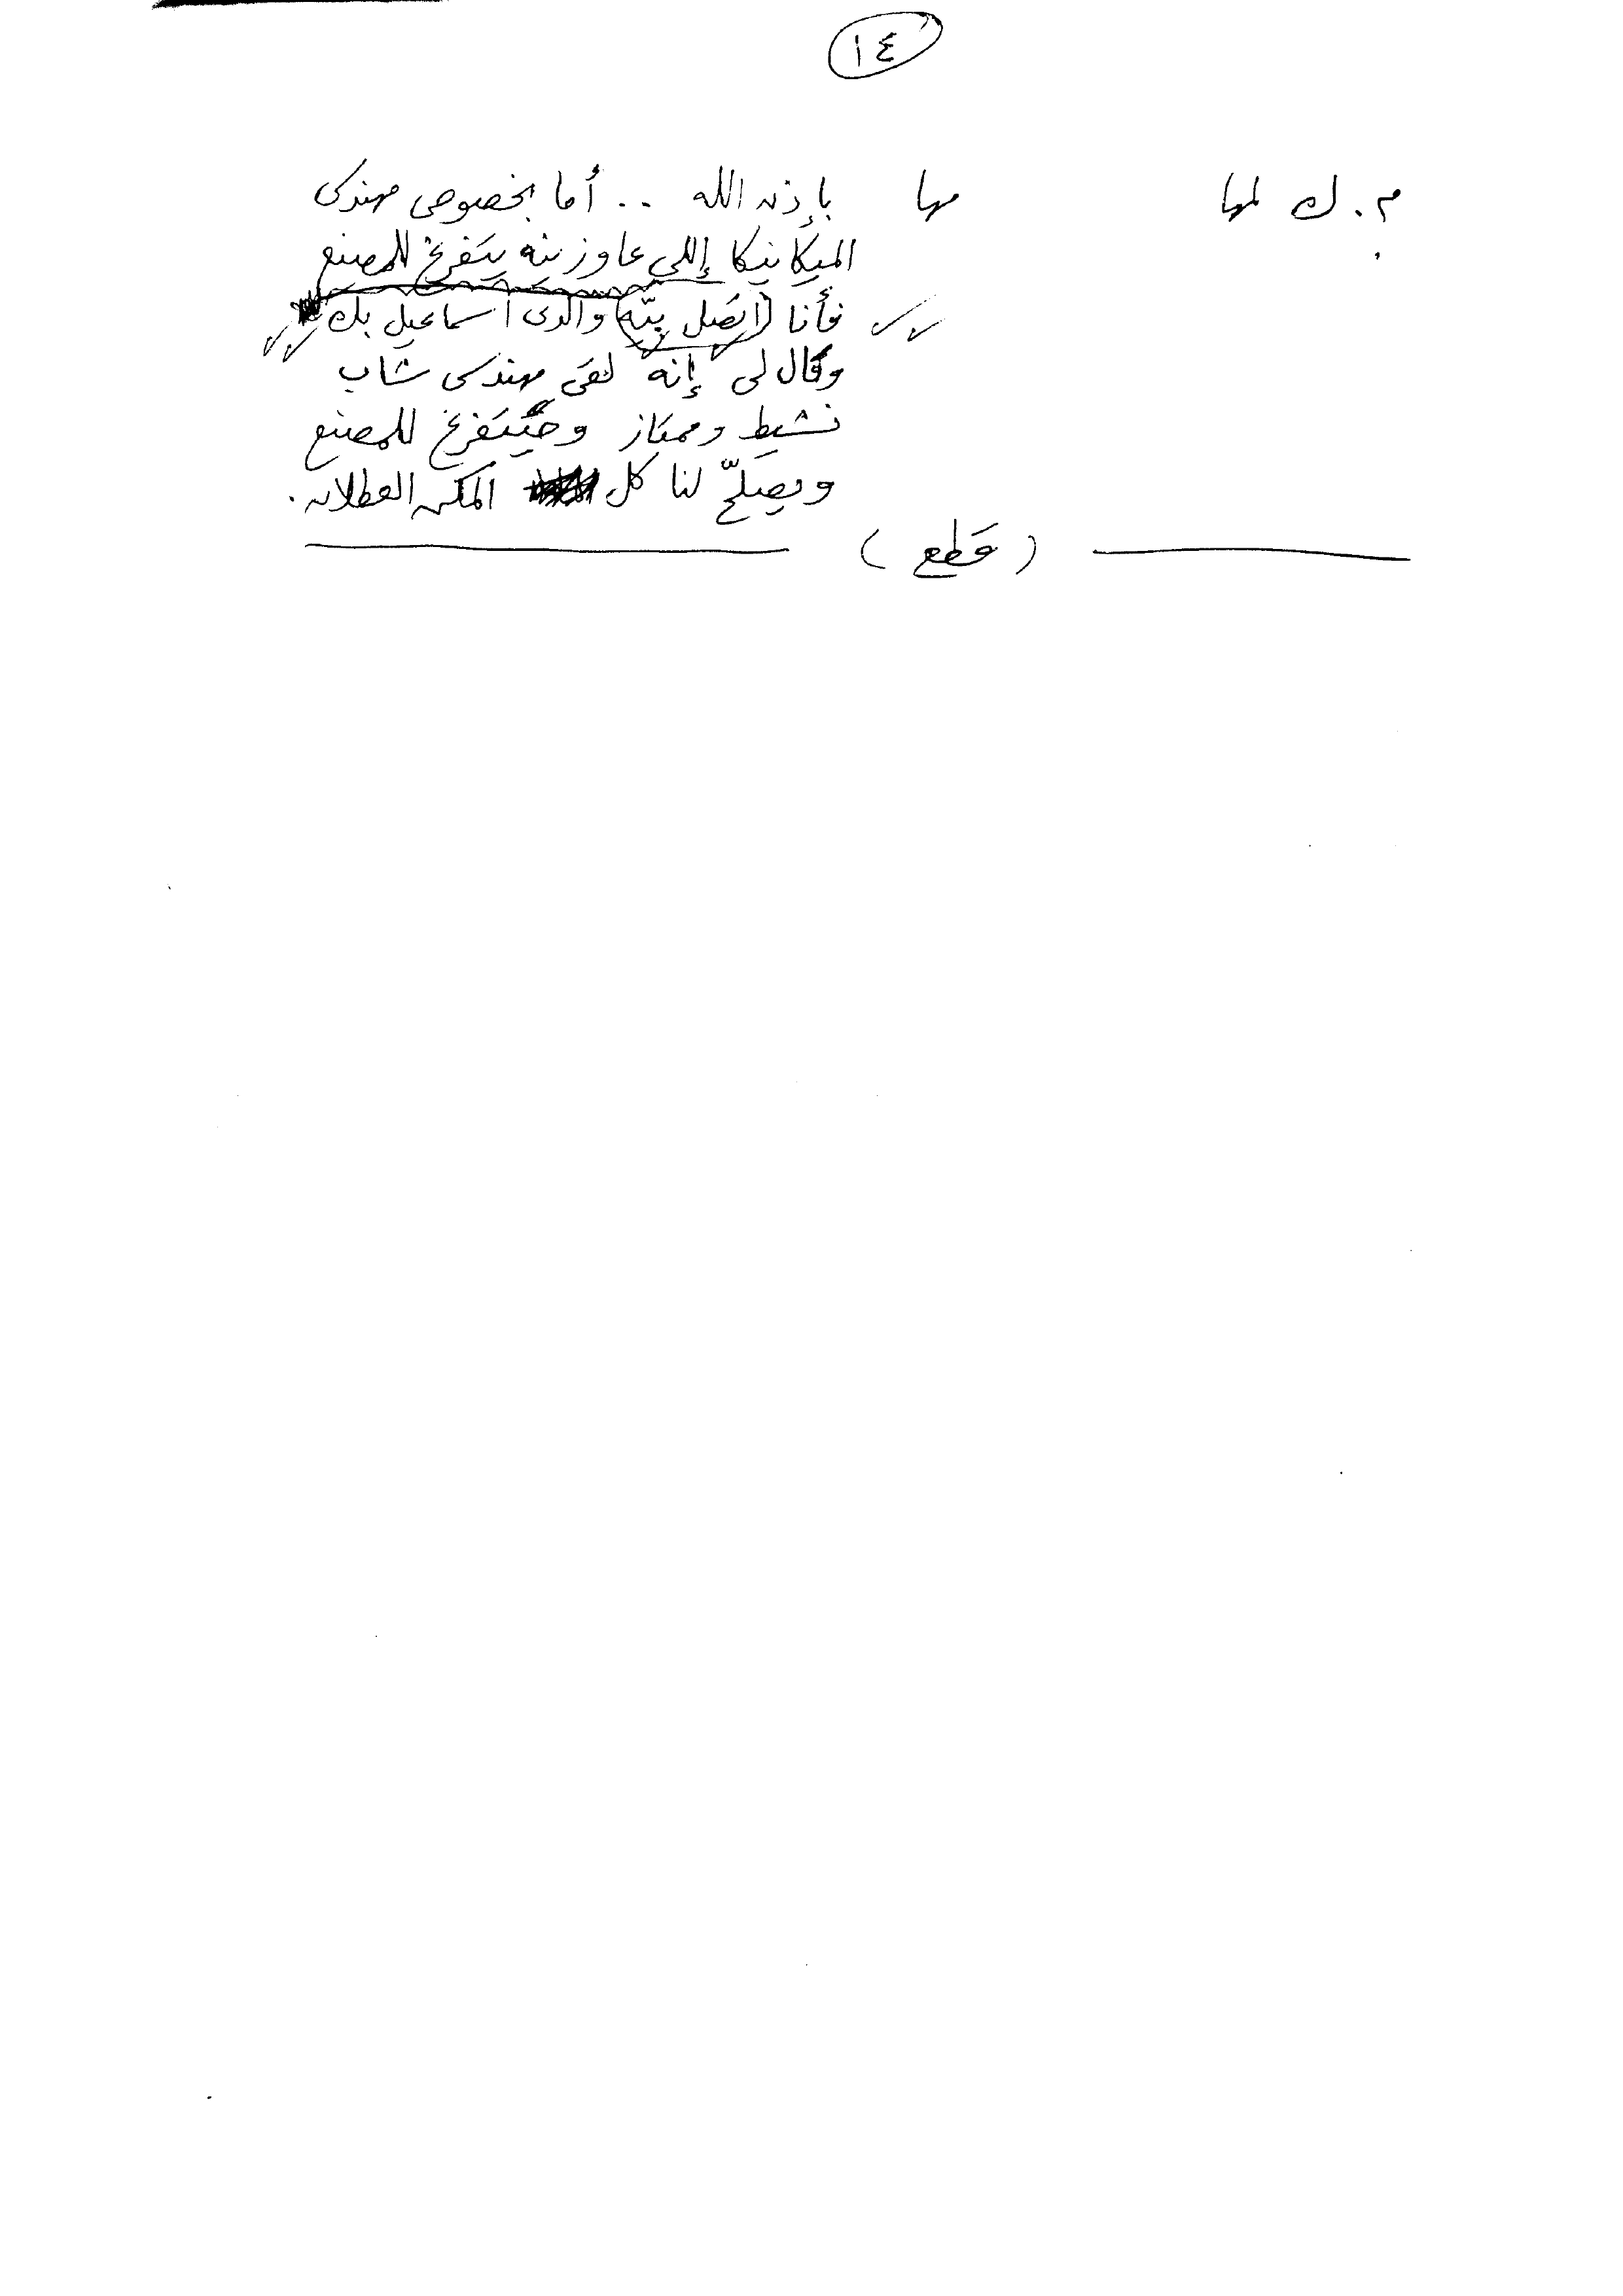 ١٤
م . ك لمها مها بإذن الله .. أما بخصوص مهندس
الميكانيكا إللي عاوزينه يتفرغ للمصنع
فأنا (اتصل بيّه) والدى اسماعيل بك
وقال لى إنه لقى مهندس شاب
نشيط وممتاز وحيتفرغ للمصنع
ويصلّح لنا كل المكن العطلان .
( قطع )